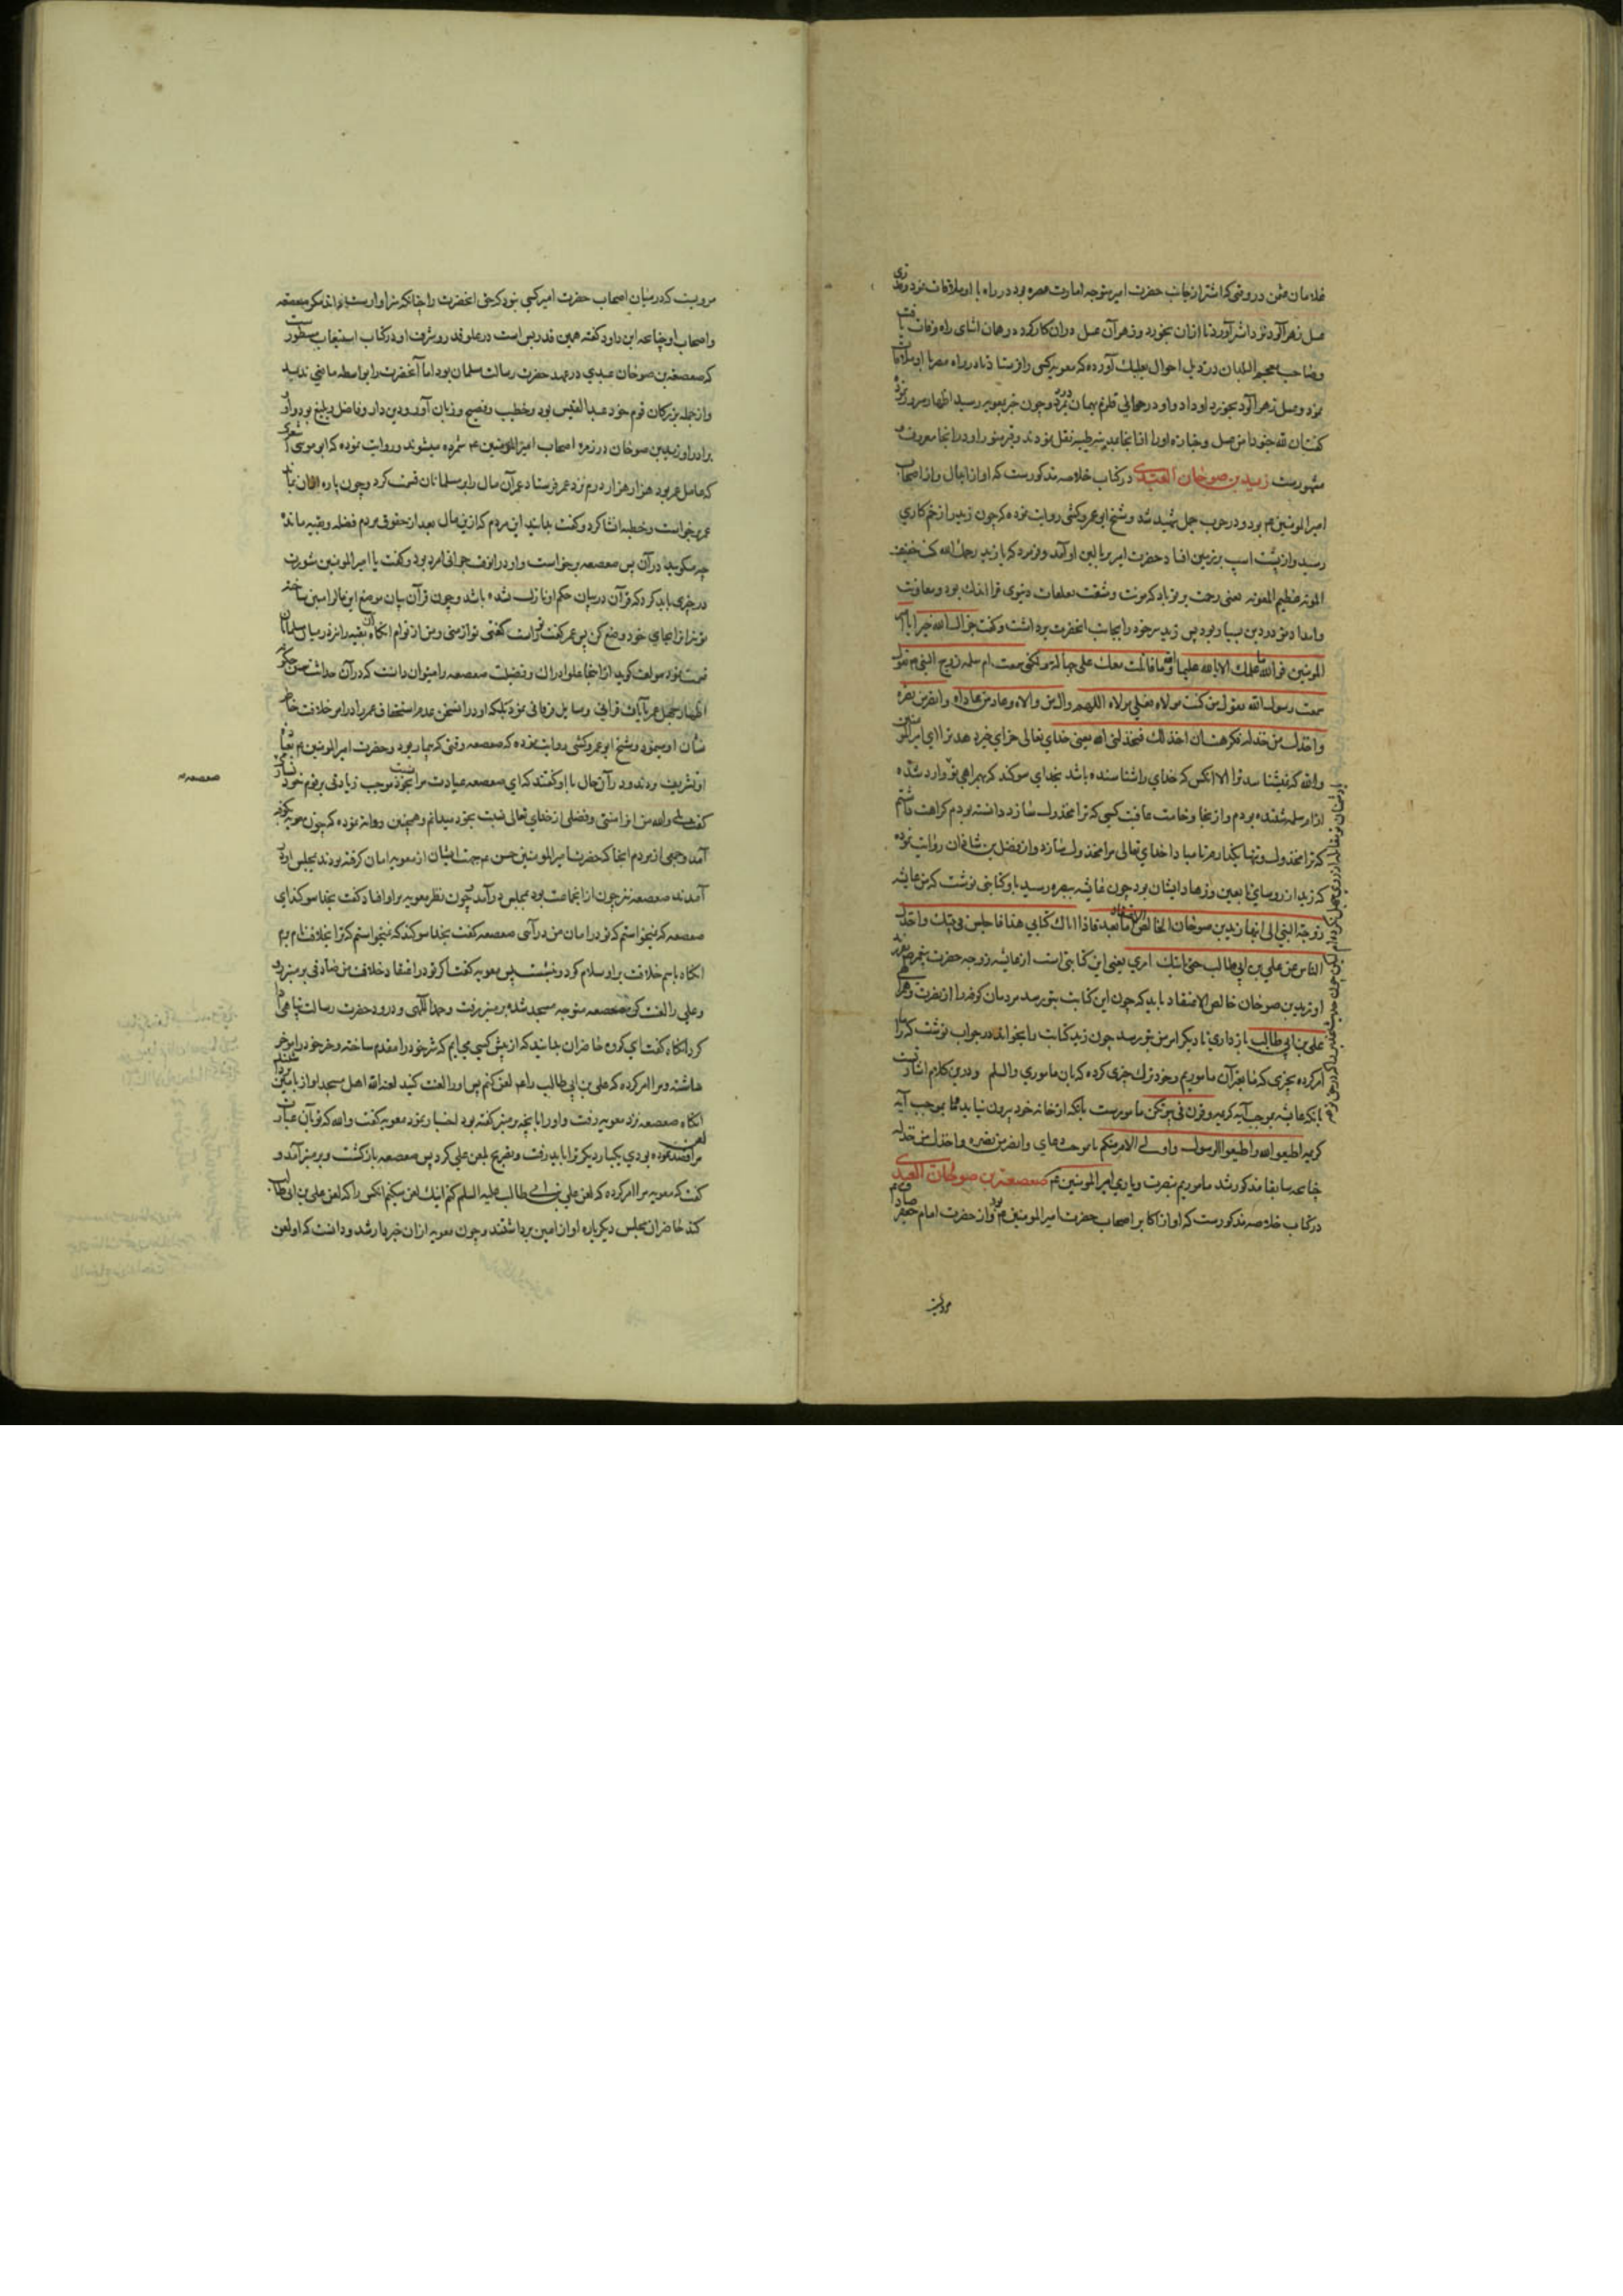 غلامان عثمن در وقتی که اشتر از جانب حضرت امیر متوجه امارت مصر بود در راه با او ملاقات نمود وقدری
عسل زهرآلود نزد اشتر آورد تا از ان بخورد و زهر آن عسل در وان کار کرده در همان اثنای راه وفات یافت
وصاحب معجم البلدان در ذیل احوال بعلبک آورده که معویه کسی را فرستاد تا در راه مصر با او ملاقات
نمود وعسل زهرآلود بخورد او داد و او در حوالی قلزم بهمان بمرد وچون خبر بمعویه رسید اظهار سرور نمود
گفت ان لله جنودا من عسل وجنازه او را از انجا بمدینه طیبه نقل نمودند وقبر منور او در انجا معروف و
مشهورست زید بن صوحان العبدی در کتاب خلاصه مذکورست که او از ابدال واز اصحاب
امیر المومنین ۴ بود و در حرب جمل شهید شد و شیخ ابو عمرو کشی روایت نموده که چون زید را زخم کاری
رسید واز پشت اسب بر زمین افتاد حضرت امیر بر بالین او آمد وفرمود که یا زید رحمک الله کنت خفیف
المونه عظیم المعونه یعنی رحمت بر تو باد که مونت ومشقت تعلقات دنیوی ترا اندک بود ومعاونت
وامداد تو در دین بسیار بود پس زید سر خود را بجانب انحضرت برداشت وگفت جزاک الله خیرا یا امیر
المومنین فوالله ما علمتک الا بالله علیما والله ما قاتلت معک علی جهاله ولکنی سمعت ام سلمه زوج النبی ۴ تقول
سمعت رسول الله یقول من کنت مولاه فعلی مولاه اللهم وال من والاه وعاد من عاداه وانصر من نصره
واخذل من خذله فکرهت ان اخذلک فیخذلنی الله یعنی خدای تعالی جزای خیر دهد ترا ای امیر المومنین
والله که نشناسد ترا الا انکس که خدای را شناسنده باشد بخدای سوکند که بهمراهی تو
از ام سلمه شنیده بودم واز ینجا وخامت عاقبت کسی که ترا مخذول سازد دانسته بودم کراهت داشتم
که ترا مخذول وتنها بگذارم تا مبادا خدای تعالی مرا مخذول سازد واز فضل بن شاذان روایت نموده
که زید از روسای تابعین وزهاد ایشان بود چون عایشه ببصره رسید باو کتابتی نوشت که من عایشه
زوجة النبی الی ابنها زید بن صوحان الخالص الاعتقاد اما بعد فاذا اتاک کتابی هذا فاجلس فی بیتک واخذل
الناس عن علی بن ابی طالب حتی یاتیک امری یعنی این کتابتی است از عایشه زوجه حضرت پیغمبر بفرزند
او زید بن صوحان خالص الاعتقاد باید که چون این کتابت بتو رسد مردمان کوفه را از نصرت وهمراهی
علی بن ابی طالب باز داری تا دیگر امر من بتو رسد چون زید کتابت را بخواند در جواب نوشت که ما را
امر کرده بچیزی که ما بغیر آن ماموریم وخود ترک چیزی کرده که بان ماموری والسلم ودرین کلام اشارت
بانکه عایشه بموجب آیه کریمه وقرن فی بیوتکن مامورست بانکه از خانه خود بیرون نیاید وما بموجب آیه
کریمه اطیعوا الله واطیعوا الرسول واولی الامر منکم با موجب دعای وانصر من نصره واخذل من خذله
چنانچه سابقا مذکور شد ماموریم بنصرت ویاری امیر المومنین ۴ صعصعة بن صوحان العبدی
در کتاب خلاصه مذکورست که او از اکابر اصحاب حضرت امیر المومنین ۴ بود واز حضرت امام جعفر صادق ۴
مرویست
مرویست که در میان اصحاب حضرت امیر کسی نبود که حق انحضرت را چنانکه سزاوارست داند مگر صعصعه
واصحاب او چنانچه ابن داود گفته همین قدر بس است در علو قدر وشرف او و در کتاب استیعاب مسطورست
که صعصعه بن صوحان عبدی در عهد حضرت رسالت مسلمان بود اما آنحضرت را بواسطه مانعی ندید
واز جمله بزرگان قوم خود عبد القیس بود وخطیب وفصیح وزبان آور ودین دار وفاضل وبلیغ بود واو
برادر او زید بن صوحان در زمره اصحاب امیر المومنین ۴ شمرده میشوند وروایت نموده که ابو موسی اشعری
که عامل عمر بود هزار هزار درم نزد عمر فرستاد عمر آن مال را بر مسلمانان قسمت کرد وچون پاره از ان
عمر برخواست وخطبه انشا کرد وگفت بدانید ای مردم که ازین مال بعد از حقوق مردم فضله وبقیه مانده
چه میگویید در آن پس صعصعه برخواست واو در انوقت جوانی امرد بود وگفت یا امیر المومنین مشورت
در چیزی باید کرد که قرآن در بیان حکم او نازل نشده باشد وچون قرآن بیان موضع این مال را معین ساخته
تو نیز انرا بجای خود وضع کن پس عمر گفت راست گفتی تو از منی ومن از توام انگاه آن بقیه را نیز در میان مسلمانان
قسمت نمود مولف گوید از اینجا علو ادراک وفضیلت صعصعه را میتوان دانست که در آن حداثت سن
اظهار جهل عمر بآیات قرانی ومسایل فرقانی نمود بلکه او در انسخن عدم استحقاق عمر را در امر خلافت خاطر
نشان او نمود وشیخ ابو عمرو کشی روایت نموده که صعصعه وقتی که بیمار بود وحضرت امیر المومنین ۴ بعیادت
او تشریف بردند ودر آن حال با او گفتند که ای صعصعه عیادت مرا نسبت بخود موجب زیادتی بر قوم خود
گفت بلی والله من انرا منتی وفضلی از خدای تعالی نسبت بخود میدانم وهمچنین روایت نموده که چون معویه بکوفه
آمد وجمعی از مردم انجا که حضرت امیر المومنین حسن ۴ جهت ایشان از معویه امان گرفته بودند بمجلس او در
آمدند صعصعه نیز چون از انجماعت بود بمجلس در آمد چون نظر معویه بر او افتاد گفت بخدا سوکند ای
صعصعه که نمیخواستم که تو در امان من در آئی صعصعه گفت بخدا سوکند که نمیخواستم که ترا بخلافت نام برم
انگاه باسم خلافت بر او سلام کرد وبنشست پس معویه گفت اگر تو در اعتقاد خلافت من صادقی بر منبر رو
وعلی را لعنت کن صعصعه متوجه مسجد شد بر منبر رفت وحمد الهی ودرود حضرت رسالت پناهی ادا
کرد انگاه گفت ای گروه حاضران بدانید که از پیش کسی می آیم که شر خود را مقدم ساخته وخیر خود را موخر
داشته ومرا امر کرده که علی بن ابی طالب را لعن کنم پس او را لعنت کنید لعنه الله اهل مسجد اواز بآمین
انگاه صعصعه نزد معویه رفت واو را بانچه بر منبر گفته بود اخبار نمود معویه گفت والله که تو بآن عبارت
لعن مرا قصد نموده بودی یکبار دیگر ترا باید رفت وتصریح بلعن علی کرد پس صعصعه بازگشت وبر منبر آمد و
گفت که معویه مرا امر کرده که لعن علی بن ابی طالب علیه السلم کنم اینک لعن میکنم انکس را که لعن علی بن ابی طالب
کند حاضران مجلس دیگر باره اواز آمین برداشتند وچون معویه از ان خبردار شد ودانست که او لعن
صعصعه